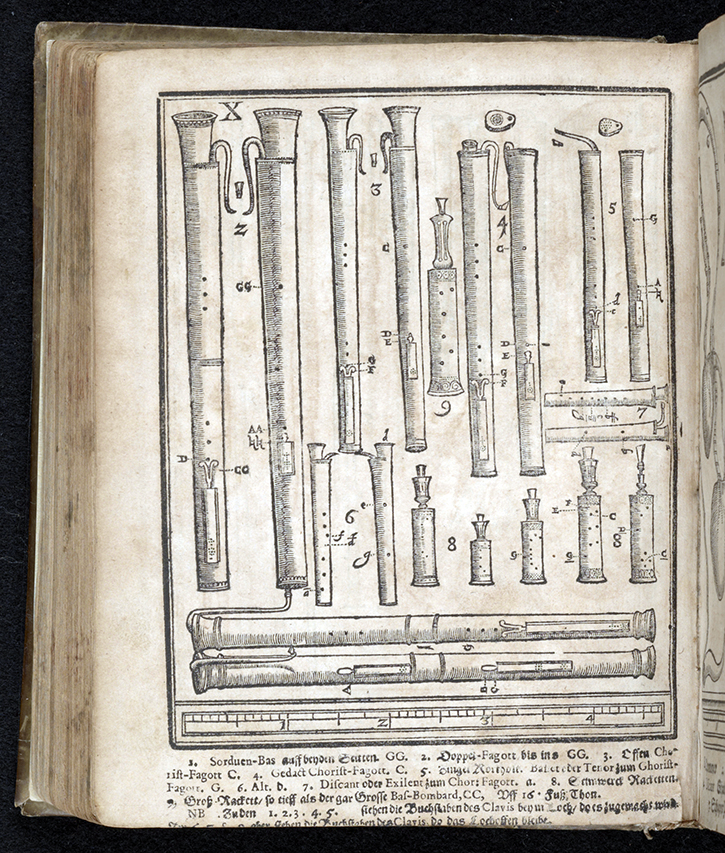 X
2
3
4
5
GG
C
C
G
D
E
G
F
D
E
g
f
d
c
A
H
9
7
AA
HH
D
GG
6
8
8
f
d
g
E
F
C
g
g
C
A
G
1 2 3 4
1. Sorduen-Bas auff beyden Seitten. GG. 2. Doppel-Fagott, bis ins GG. 3. Offen Cho-
rist-Fagott C. 4. Gedact Chorist-Fagott. C. 5. Singel Kortholt. Basset oder Tenor zum Chorist-
Fagott. G. 6. Alt. d. 7. Discant oder Exilent zum Chorist Fagott. a. 8. Racketten.
9. Groß-Rackett / so tieff als der gar Grosse Baß-Bombard, CC, Uff 16. Fuß Thon.
NB. Zu den 1. 2. 3. 4. 5. stehen die Buchstaben des Clavis beym Loch / do es zugemacht wird.
stehen die Buchstaben des Clavis, do das Loch offen bleibt.